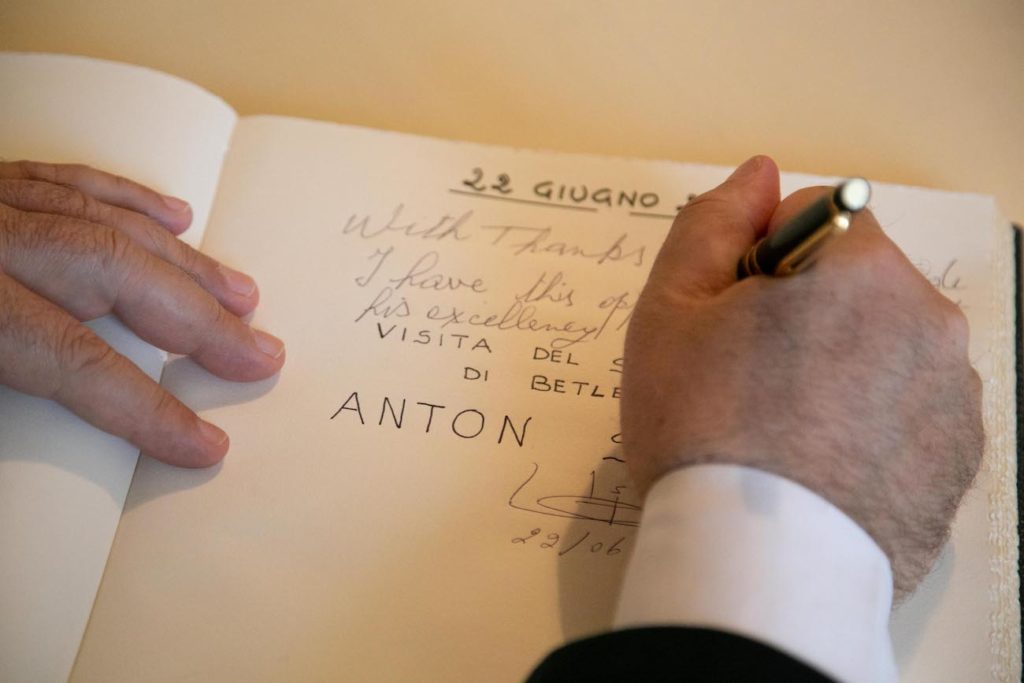 22 GIUGNO
With Thanks
I have this
his excellency
VISITA DEL
DI
ANTON
22/06